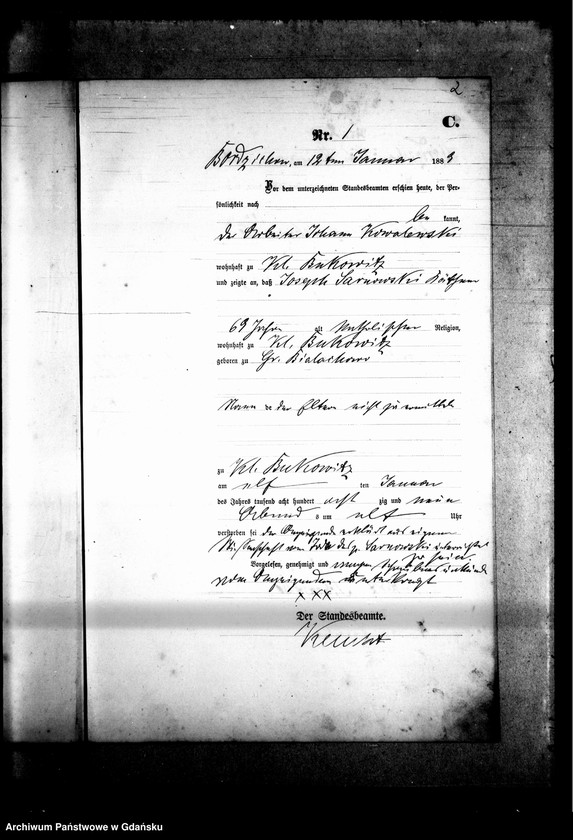 2
C.
Nr. 1
am 12ten Januar 1889
Vor dem unterzeichneten Standesbeamten erschien heute, der Per-
sönlichkeit nach
be kannt,
der Arbeiter Johann Kowalewski
wohnhaft zu Kl. Bukowitz
und zeigte an, daß Joseph Sarnowski
69 Jahre alt katholischer Religion,
wohnhaft zu Kl. Bukowitz
geboren zu Gr. Bialachowo
Namen der Eltern nicht zu ermitteln
zu Kl. Bukowitz
am elf ten Januar
des Jahres tausend acht hundert acht zig und neun
Abends um elf Uhr
verstorben sei der Anzeigende erklärt aus eigener
Wissenschaft vom Tode des p. Sarnowski unterrichtet
zu sein.
Vorgelesen, genehmigt und wegen
vom Anzeigenden unterkreuzt
x x x
Der Standesbeamte.
Archiwum Państwowe w Gdańsku